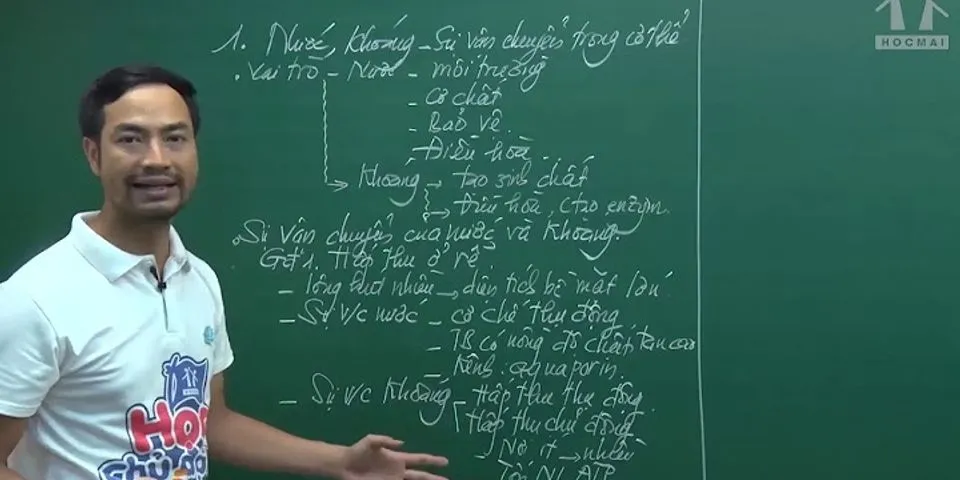 HOCMAI
1. Nước, Khoáng - Sự vân chuyển trong cơ thể
. Vai trò - Nước - môi trường
- Cơ chất
- Bảo vệ.
- Điều hoà.
Khoáng → tạo sinh chất
→ Điều hoà, ctạo enzym.
. Sự vân chuyển của nước và Khoáng.
Gđ1. Hấp thu ở rễ.
- lông hút nhiều → diện tích bề mặt lớn.
- Sự v/c nước - cơ chế thụ động
- TB có nồng độ chất tan cao
- Kênh: aquaporin.
- Sự v/c Khoáng - Hấp thu thụ động.
Hấp thu chủ động
Nơi ít → nhiều
Tốn NL ATP
HỌC